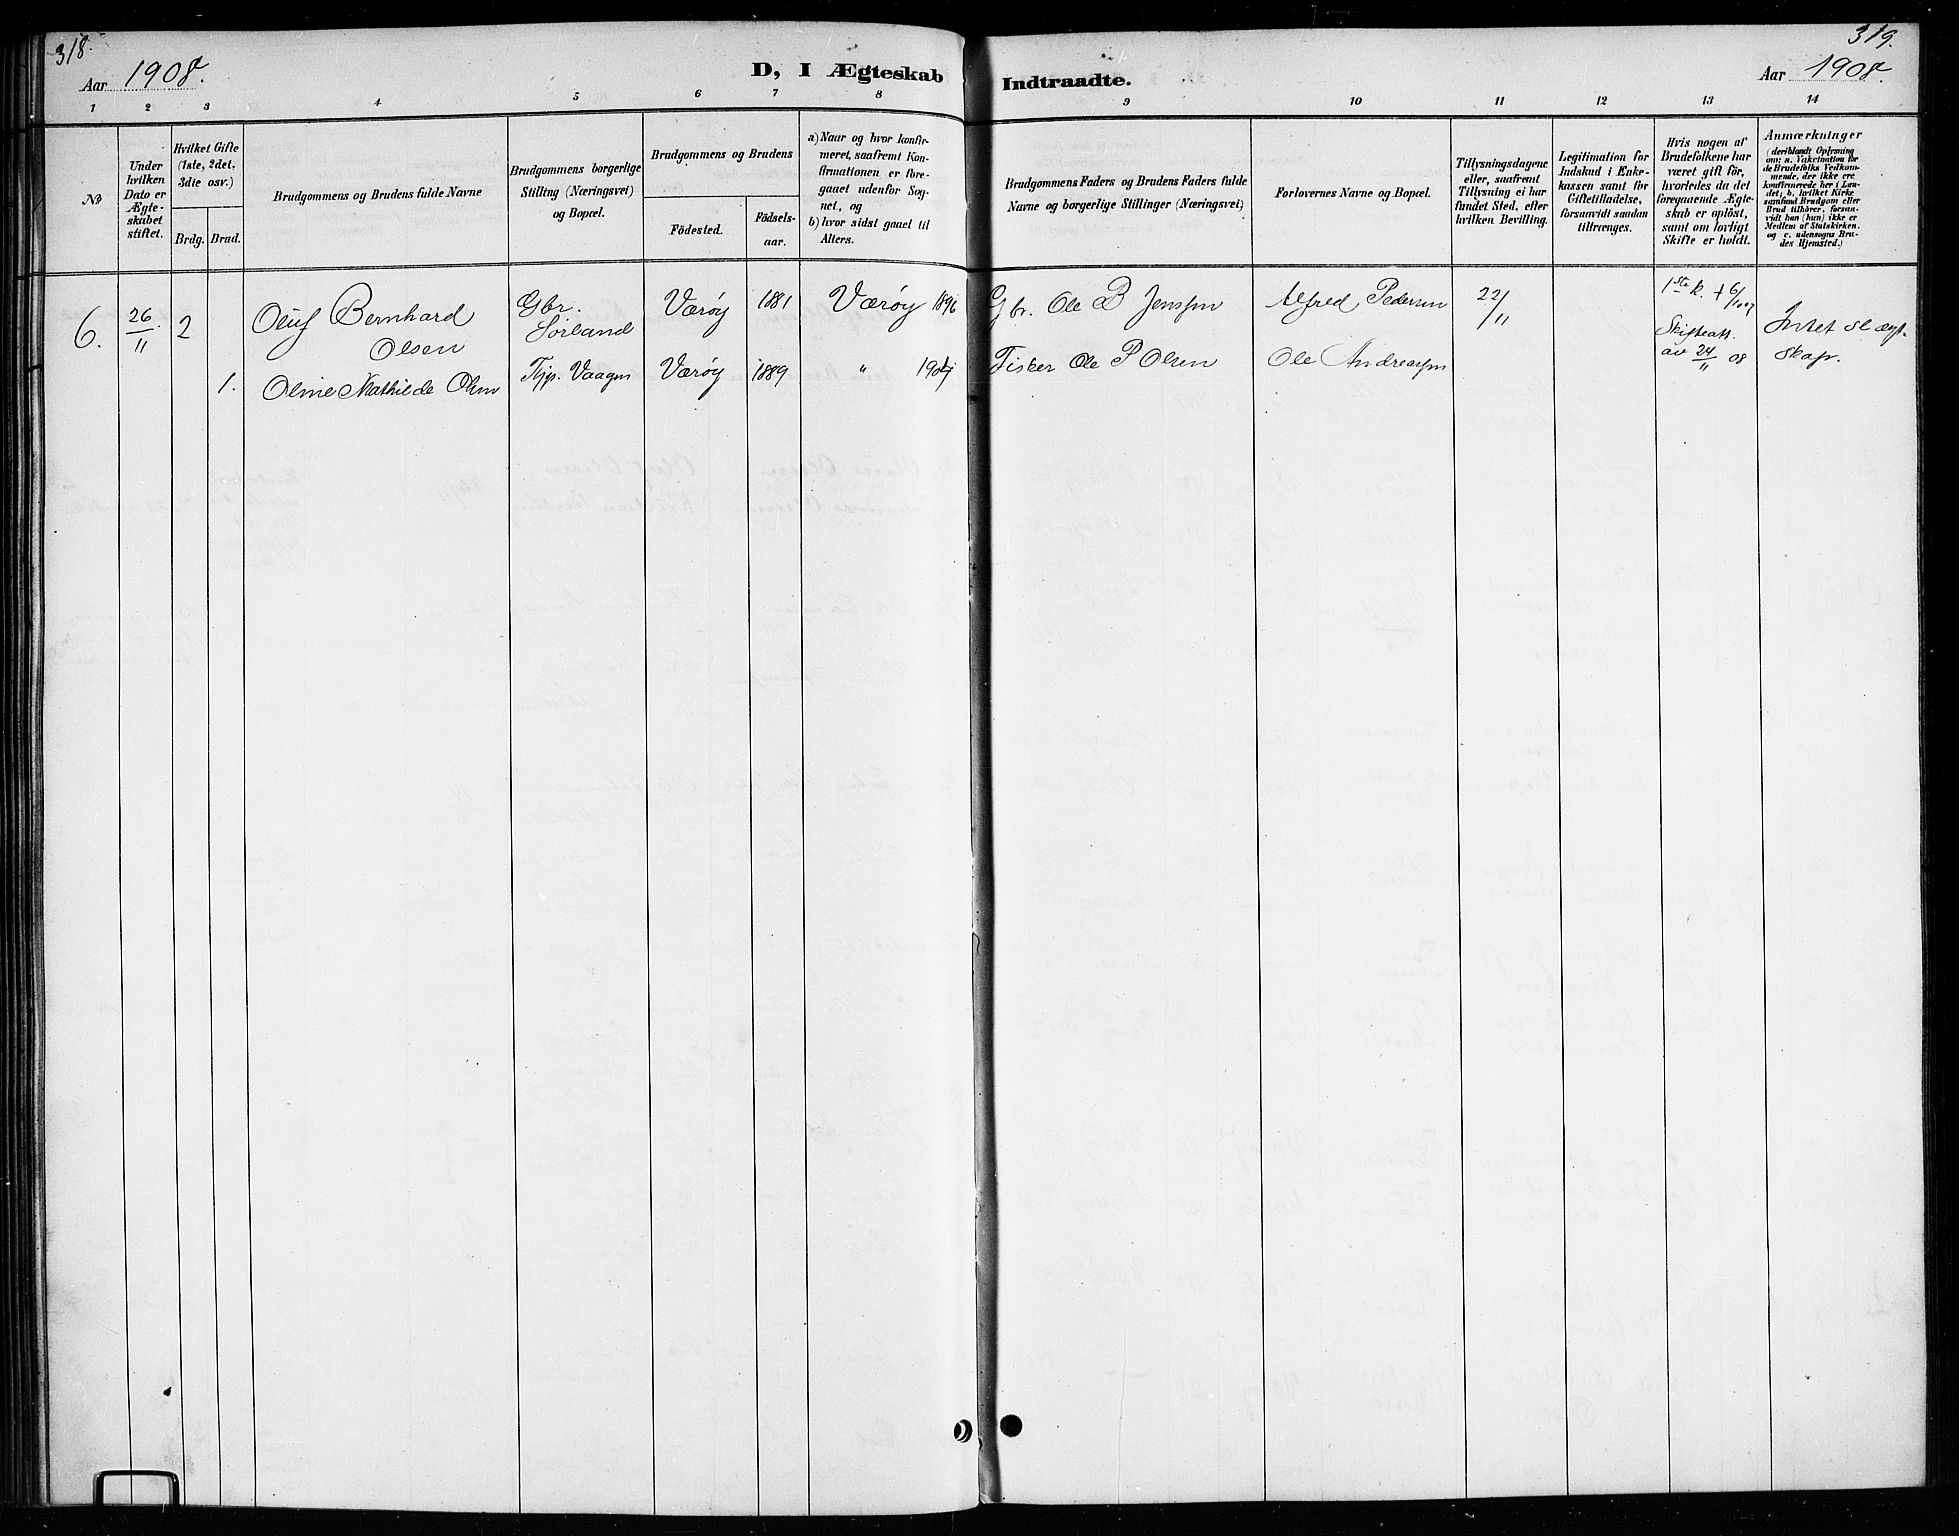 318.
319.
Aar 1908.
D, I Ægteskab
Indtraadte.
Aar 1908.
1 2 3 4 5 6 7 8 9 10 11 12 13 14
No
Under
hvilken
Dato er
Ægte-
skabet
stiftet.
Hvilket Gifte
(1ste, 2det,
3die osv.)
Brdg.
Brud.
Brudgommens og Brudens fulde Navne
Brudgommens borgerlige
Stilling (Næringsvei)
og Bopæl.
Brudgommens og Brudens
Födested.
Födsels-
aar.
a) Naar og hvor konfir-
meret, saafremt Kon-
firmationen er fore-
gaaet udenfor Sog-
net, og
b) hvor sidst gaaet til
Alters.
Brudgommens Faders og Brudens Faders fulde
Navne og borgerlige Stillinger (Næringsvei)
Forlovernes Navne og Bopæl.
Tillysningsdagene
eller, saafremt
Tillysning ei har
fundet Sted, efter
hvilken Bevilling.
Legitimation for
Indskud i Enke-
kassen samt for
Giftetilladelse,
forsaavidt saadan
tiltrænges.
Hvis nogen af
Brudefolkene har
været gift för,
hvorledes da det
foregaaende Ægte-
skab er oplöst,
samt om lovligt
Skifte er holdt.
Anmærkninger
(deriblandt Oplysning
om: a. Vakcination for
de Brudefolks Vedkom-
mende, der ikke ere
konfirmerede her i Lan-
det; b. hvilket Kirke
samfund Brudgom eller
Brud tilhörer, forsaa-
vidt han (hun) ikke er
Medlem af Statskirken.
og c. udensogns Bru-
des Hjemsted.)
6. 26/11 2 Oluf Bernhard
Olsen
Gbr.
Sörland
Værøy 1881 Værøy 1896 Gbr. Ole B Jenssen Alfred Pedersen 22/11
1ste k. † 6/1 1907
Skifteatt.
av 24/11 08
Intet slægt-
skap.
1. Oline Mathilde Olsen Tjp. Vaagen Værøy 1889 " 1904 Fisker Ole P Olsen Ole Andreassen